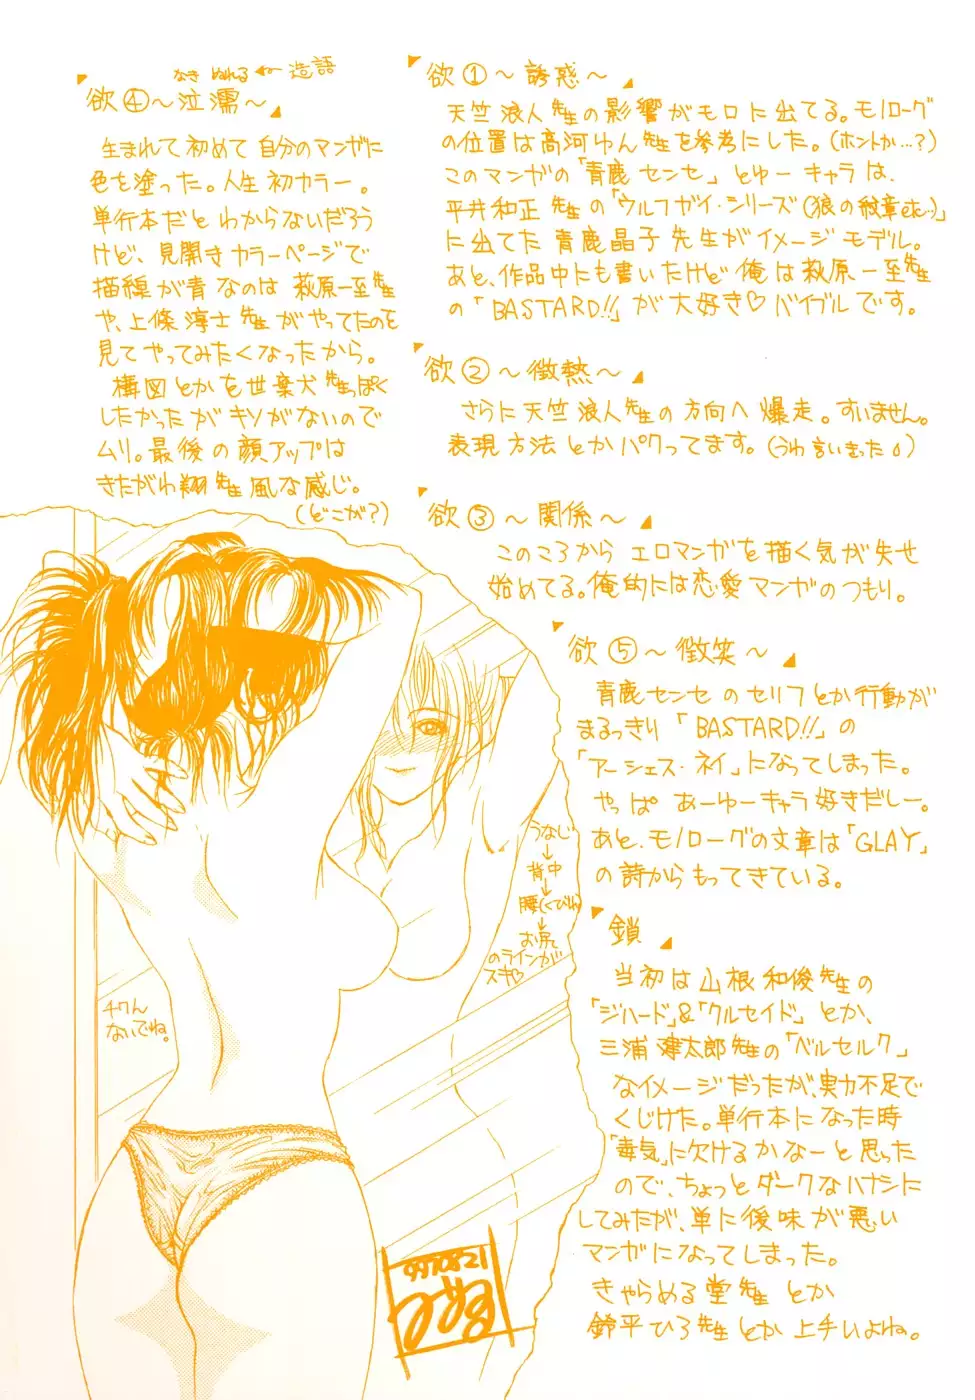 欲①～誘惑～
天竺浪人先生の影響がモロに出てる。モノローグ
の位置は高河ゆん先生を参考にした。(ホントか…?)
このマンガの「青鹿センセ」とゆーキャラは、
平井和正先生の「ウルフガイ・シリーズ(狼の紋章etc…)」
に出てた青鹿晶子先生がイメージモデル。
あと、作品中にも書いたけど俺は萩原一至先生
の「BASTARD!!」が大好き♡バイブルです。
欲②～微熱～
さらに天竺浪人先生の方向へ爆走。すいません。
表現方法とかパクってます。(うわ言いきった)
欲③～関係～
このころからエロマンガを描く気が失せ
始めてる。俺的には恋愛マンガのつもり。
なき ぬれる ← 造語
欲④～泣濡～
生まれて初めて自分のマンガに
色を塗った。人生初カラー。
単行本だとわからないだろう
けど、見開きカラーページで
描線が青なのは萩原一至先生
や、上條淳士先生がやってたのを
見てやってみたくなったから。
構図とかを世葉犬先生っぽく
したかったがキソがないので
ムリ。最後の顔アップは
きたがわ翔先生風な感じ。
(どこが?)
欲⑤～微笑～
青鹿センセのセリフとか行動が
まるっきり「BASTARD!!」の
「アーシェス・ネイ」になってしまった。
やっぱあーゆーキャラ好きだしー。
あと、モノローグの文章は「GLAY」
の詩からもってきている。
鎖
当初は山根和俊先生の
「ジハード」&「クルセイド」とか、
三浦建太郎先生の「ベルセルク」
なイメージだったが、実力不足で
くじけた。単行本になった時
「毒気」に欠けるかなーと思った
ので、ちょっとダークなハナシに
してみたが、単に後味が悪い
マンガになってしまった。
きゃらめる堂先生とか
鈴平ひろ先生とか上手いよね。
うなじ
↓
背中
↓
腰(くびれ)
↓
お尻
のラインが
スキ♡
チクんないでね。
970821